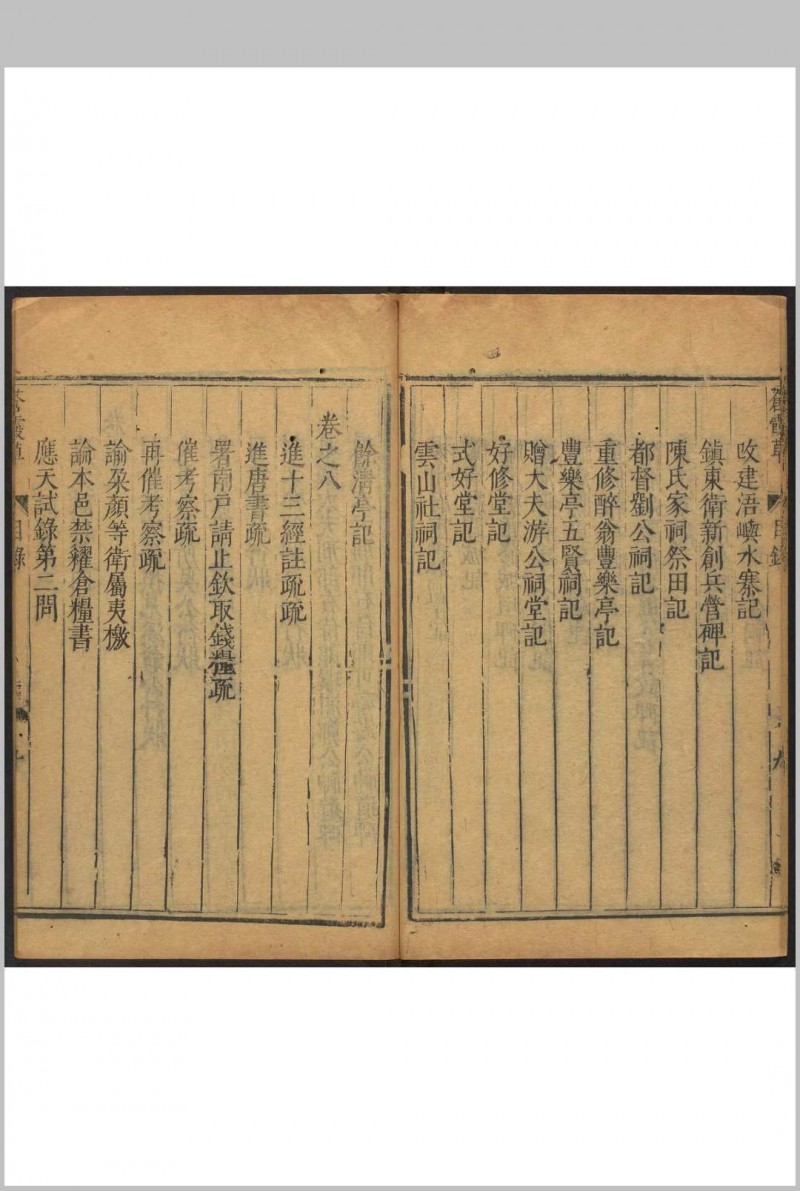 改建浯嶼水寨記
鎮東衛新創兵營碑記
陳氏家祠祭田記
都督劉公祠記
重修醉翁豐樂亭記
豐樂亭五賢祠記
贈大夫游公祠堂記
好修堂記
式好堂記
雲山社祠記
餘清亭記
卷之八
進十三經註疏疏
進唐書疏
署南戶請止欽取錢糧疏
催考察疏
再催考察疏
諭朶顏等衛屬夷檄
論本邑禁糴倉糧書
應天試錄第二問
蒼霞草
目錄
九